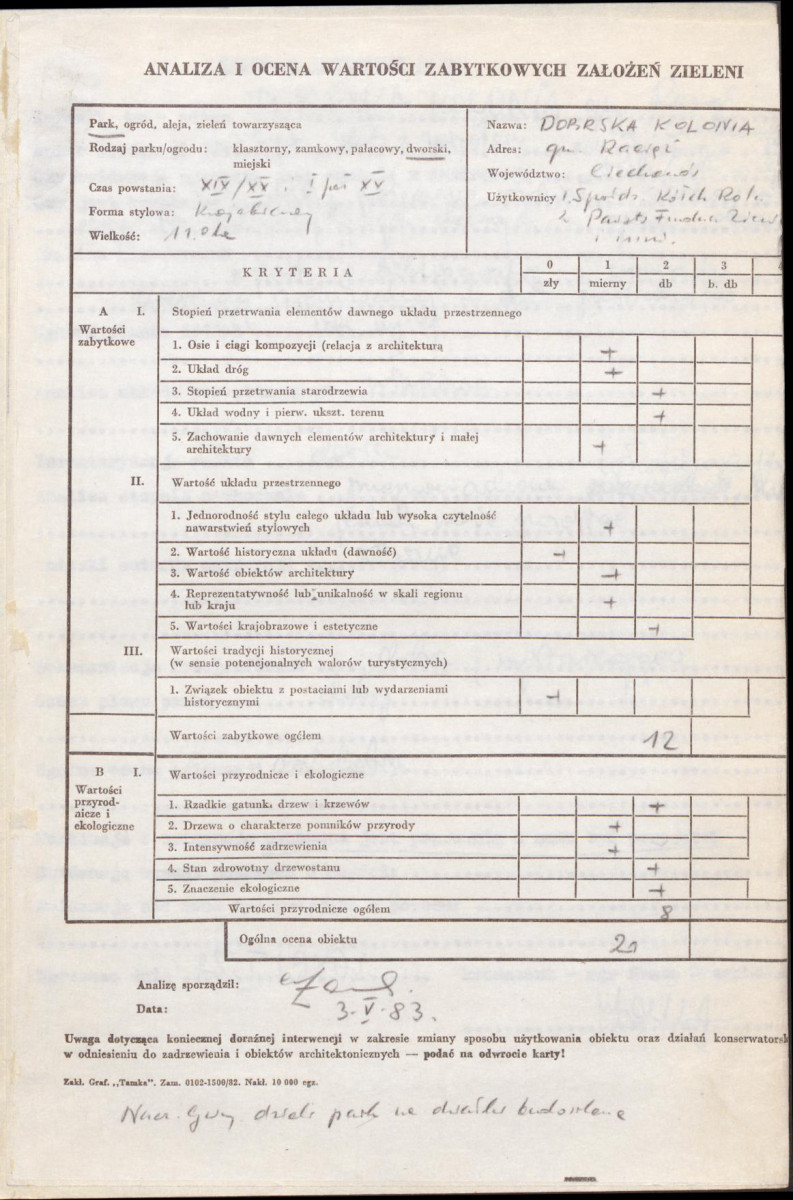 ANALIZA I OCENA WARTOŚCI ZABYTKOWYCH ZAŁOŻEŃ ZIELENI
Park, ogród, aleja, zieleń towarzysząca
Rodzaj parku/ogrodu: klasztorny, zamkowy, pałacowy, dworski,
miejski
Czas powstania: XIX/XX i I poł XX
Forma stylowa: Krajobrazowy
Wielkość: 11.0 ha
Nazwa: DOBRSKA KOLONIA
Adres: gm. Raciąż
Województwo: Ciechanów
Użytkownicy 1. Spółdz. Kółek Roln.
2. Państ. Fundusz Ziemi
i inni.
KRYTERIA
0 1 2 3
zły mierny db b. db
A I. Stopień przetrwania elementów dawnego układu przestrzennego
Wartości
zabytkowe
1. Osie i ciągi kompozycji (relacja z architekturą +
2. Układ dróg +
3. Stopień przetrwania starodrzewia +
4. Układ wodny i pierw. ukszt. terenu +
5. Zachowanie dawnych elementów architektury i małej
architektury +
II. Wartość układu przestrzennego
1. Jednorodność stylu całego układu lub wysoka czytelność
nawarstwień stylowych +
2. Wartość historyczna układu (dawność) +
3. Wartość obiektów architektury +
4. Reprezentatywność lub unikalność w skali regionu
lub kraju +
5. Wartości krajobrazowe i estetyczne +
III. Wartości tradycji historycznej
(w sensie potencjonalnych walorów turystycznych)
1. Związek obiektu z postaciami lub wydarzeniami
historycznymi +
Wartości zabytkowe ogółem 12
B I. Wartości przyrodnicze i ekologiczne
Wartości
przyrod-
nicze i
ekologiczne
1. Rzadkie gatunki drzew i krzewów +
2. Drzewa o charakterze pomników przyrody +
3. Intensywność zadrzewienia +
4. Stan zdrowotny drzewostanu +
5. Znaczenie ekologiczne +
Wartości przyrodnicze ogółem 8
Ogólna ocena obiektu 20
Analizę sporządził:
Data: 3.V.83.
Uwaga dotycząca koniecznej doraźnej interwencji w zakresie zmiany sposobu użytkowania obiektu oraz działań konserwatorsk
w odniesieniu do zadrzewienia i obiektów architektonicznych — podać na odwrocie karty!
Zakł. Graf. „Tamka”. Zam. 0102-1500/82. Nakł. 10 000 egz.
Nacz. Gminy dzieli park na działki budowlane